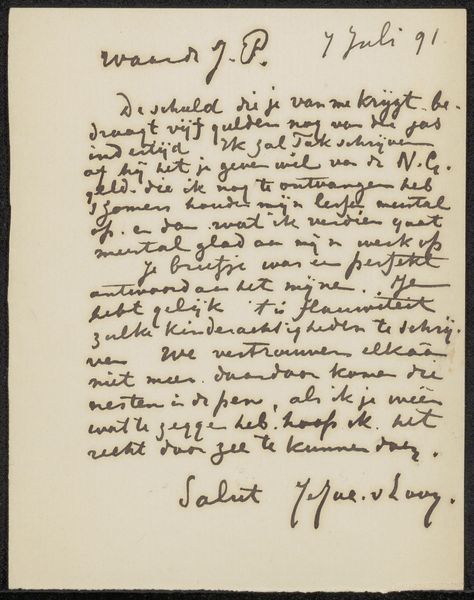 7 Juli 91
Waarde J. P.
De schuld die je van me krijgt be-
draagt vijf gulden nog van die jas
indertijd Ik zal Tak schrijven
of hij het je geven wil van de N.G.
geld. die ik nog te ontvangen heb
's zomers houden mijn lessen meestal
op. en dan wat ik verdien gaat
meestal glad aan mijn werk op
Je briefje was een perfekt
antwoord aan het mijne. Je
hebt gelijk 't is flauwiteit
zulke kinderachtigheden te schrij-
ven We vertrouwen elkaar
niet meer. daardoor komen die
nesten in de pen, als ik je weer
wat te zeggen heb. hoop ik het
recht door zee te kunnen doen.
Salut Jac. v Looy.